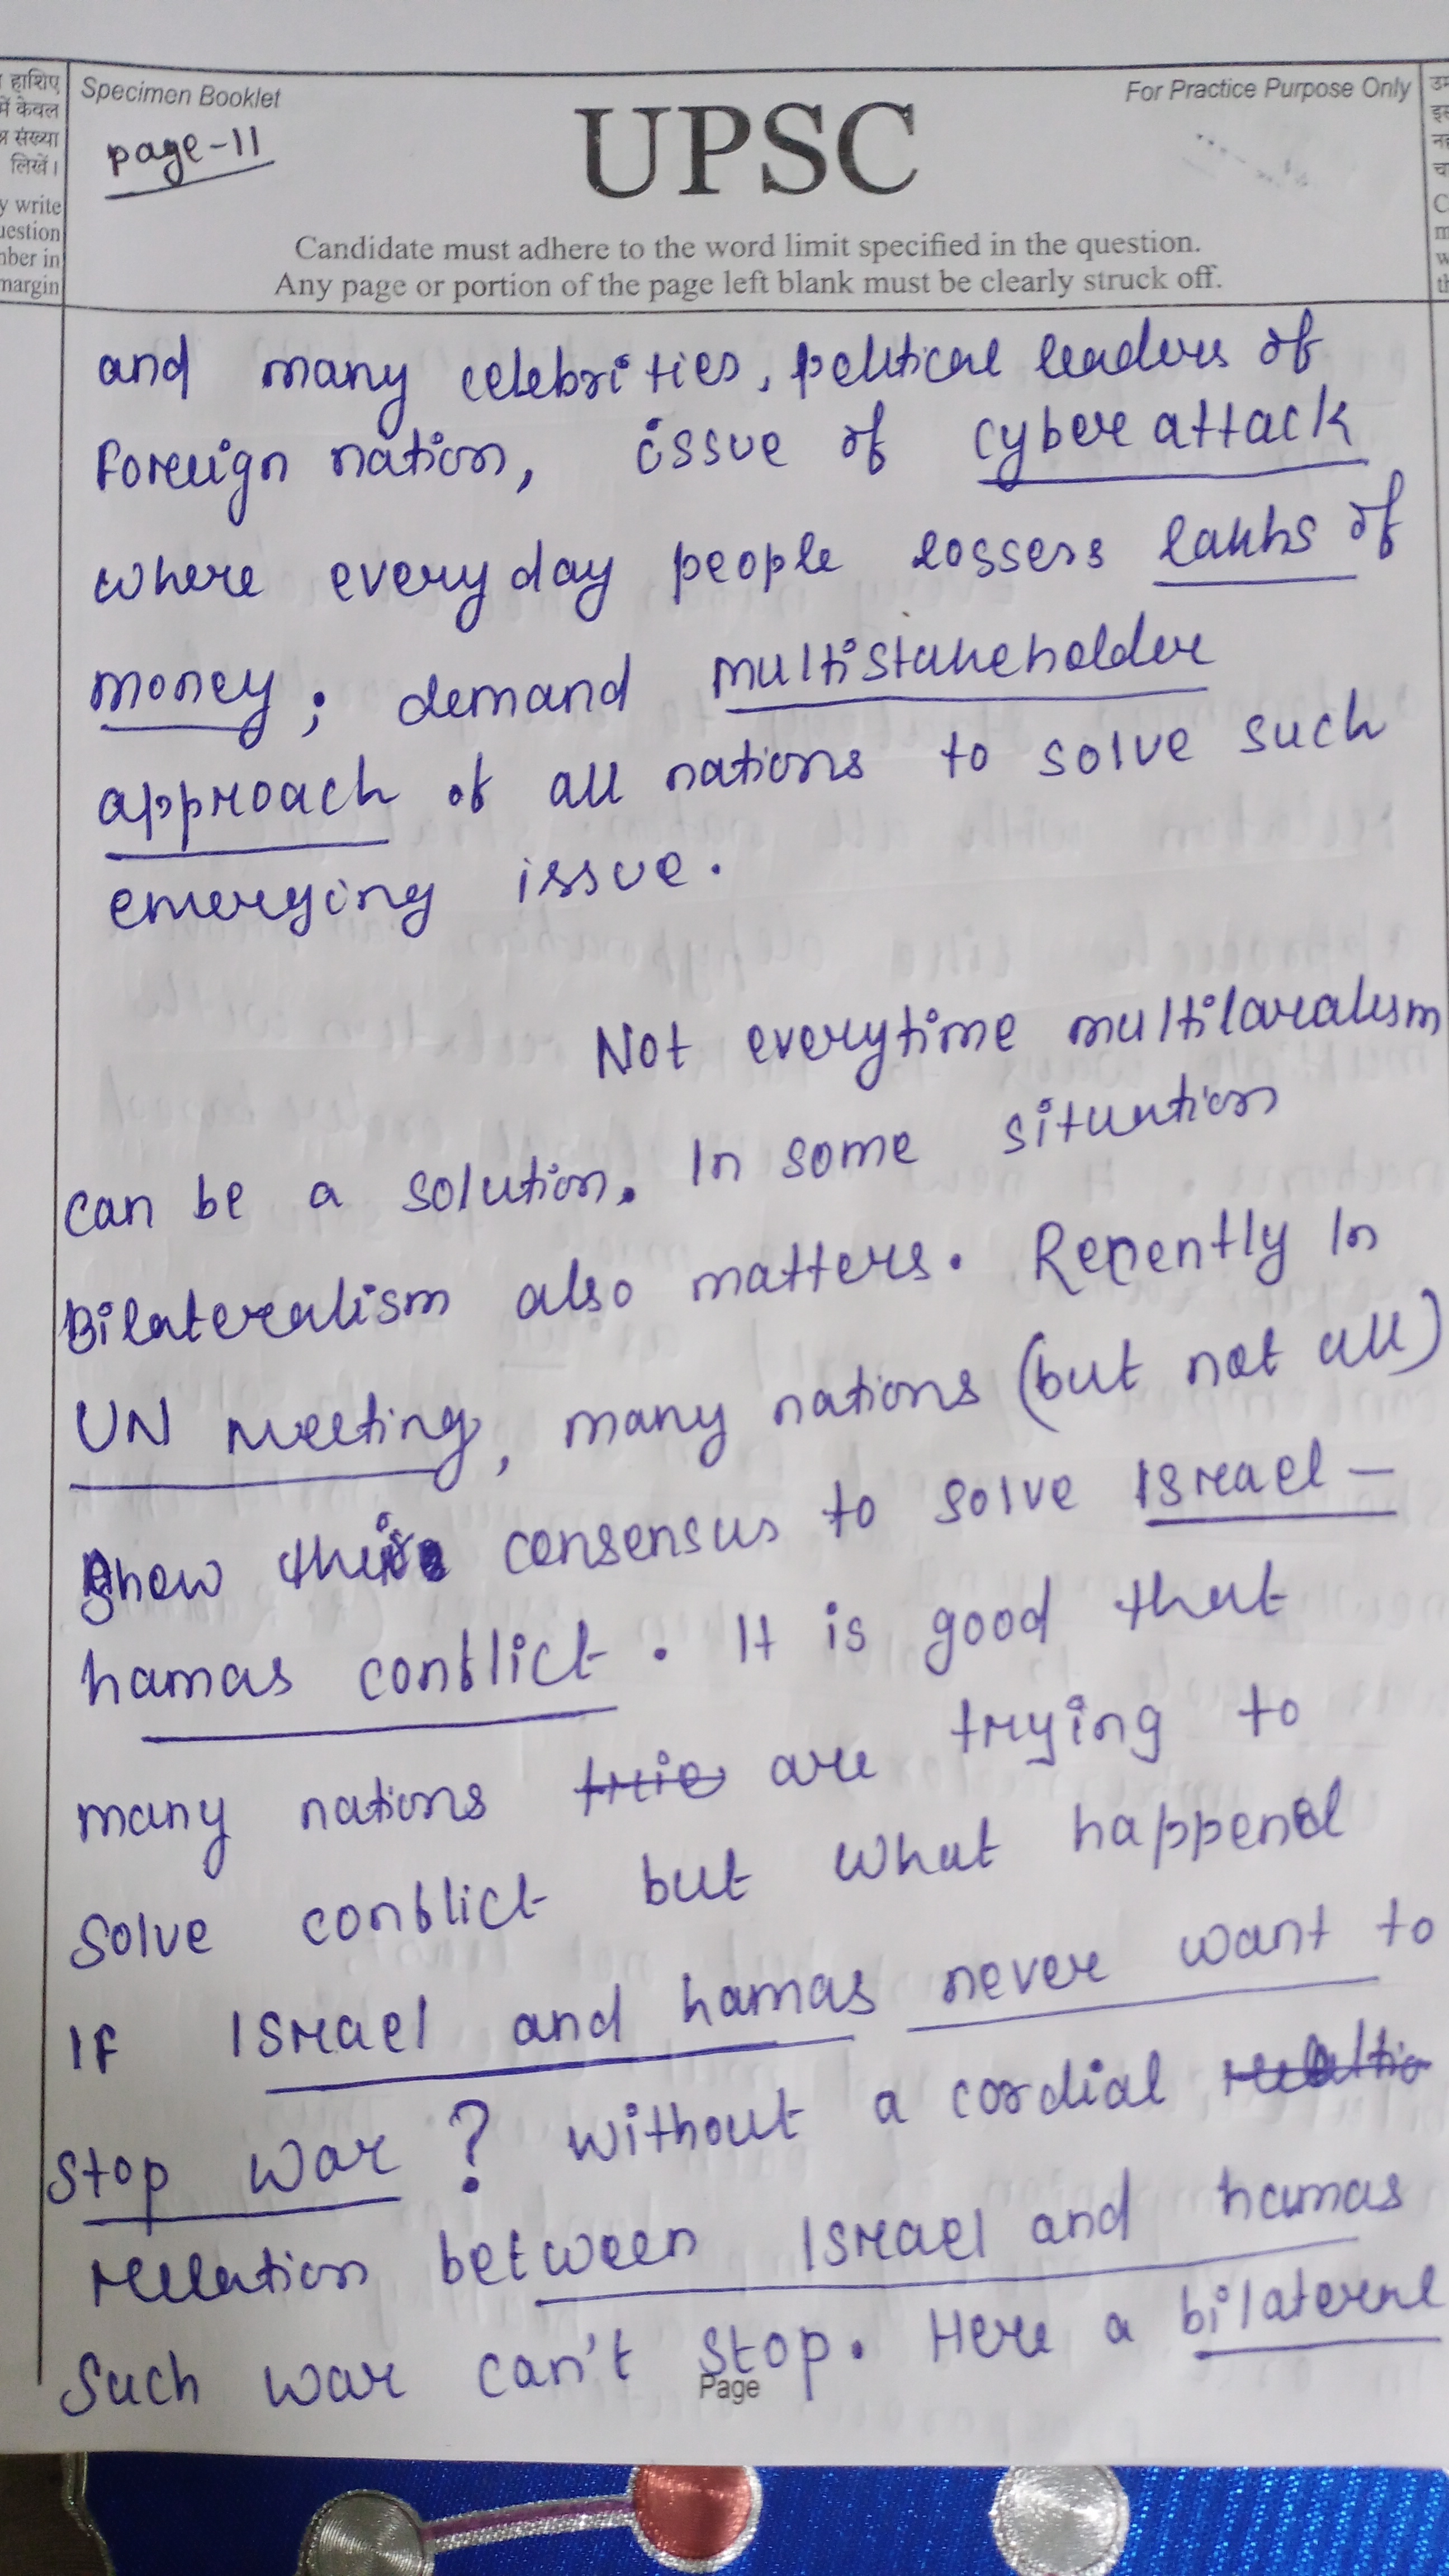 हाशिए
में केवल
संख्या
लिखें।
write
uestion
ber in
margin
Specimen Booklet
For Practice Purpose Only
page-11
UPSC
Candidate must adhere to the word limit specified in the question.
Any page or portion of the page left blank must be clearly struck off.
and many celebrities, political leaders of
Foreign nation, issue of cyber attack
where everyday people lossess lakhs of
money; demand multistakeholder
approach of all nations to solve such
emerging issue.
Not everytime multilaralism
can be a solution. In some situation
Bilateralism also matters. Recently In
UN meeting, many nations (but not all)
show their consensus to solve Israel-
hamas conflict. It is good that
many nations are trying to
solve conflict but what happened
If Israel and hamas never want to
stop war? without a cordial
relation between Israel and hamas
Such war can't stop. Here a bilateral
Page